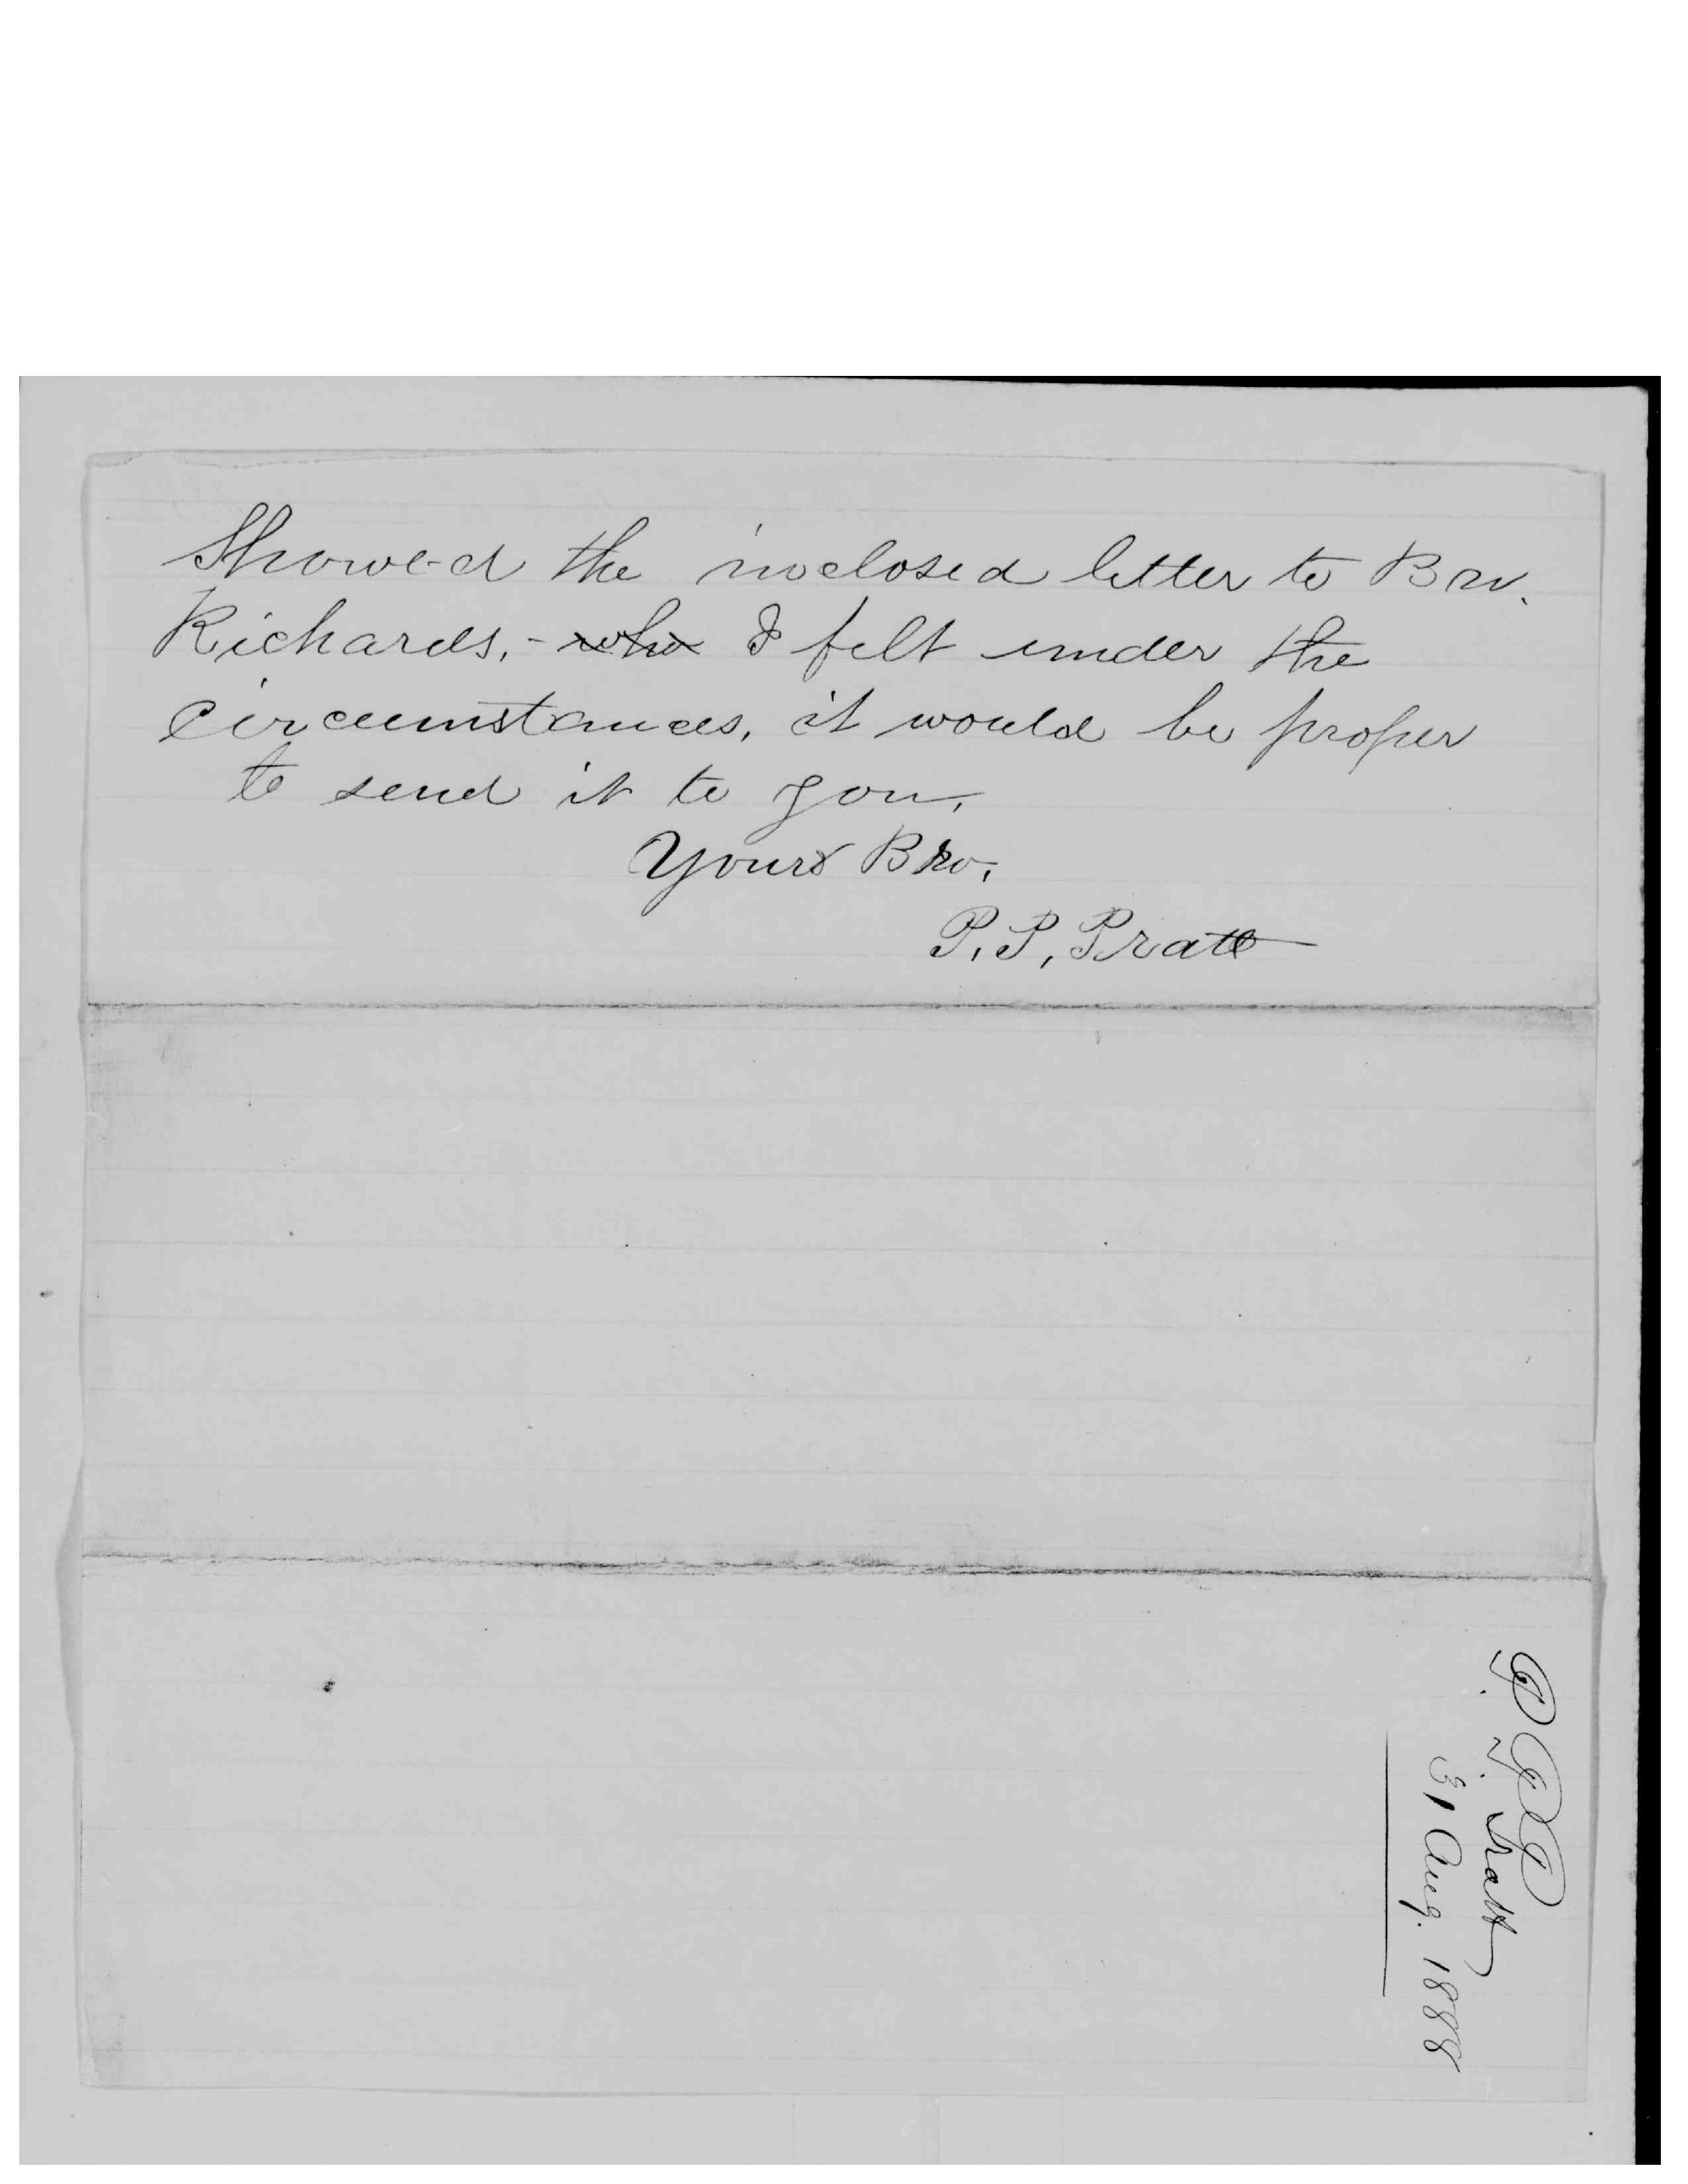 Showed the inclosed letter to Bro.
Richards, - who I felt under the
circumstances, it would be proper
to send it to you,
Yours Bro,
P. P. Pratt
P. P. Pratt
31 Aug. 1888